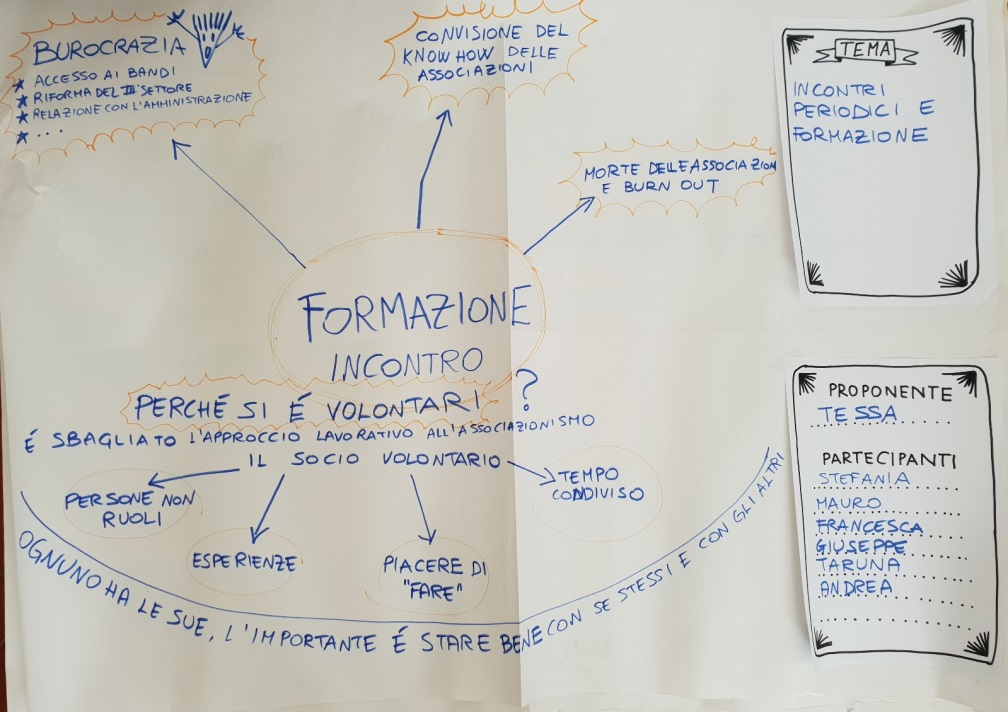 BUROCRAZIA
★ ACCESSO AI BANDI
★ RIFORMA DEL III° SETTORE
★ RELAZIONE CON L'AMMINISTRAZIONE
★ ...
CONVISIONE DEL
KNOW HOW DELLE
ASSOCIAZIONI
MORTE DELLE ASSOCIAZIONI
E BURN OUT
TEMA
INCONTRI
PERIODICI E
FORMAZIONE
FORMAZIONE
INCONTRO
PERCHÉ SI É VOLONTARI ?
É SBAGLIATO L'APPROCCIO LAVORATIVO ALL'ASSOCIAZIONISMO
IL SOCIO VOLONTARIO
PERSONE NON
RUOLI
ESPERIENZE
PIACERE DI
"FARE"
TEMPO
CONDIVISO
OGNUNO HA LE SUE, L'IMPORTANTE É STARE BENE CON SE STESSI E CON GLI ALTRI
PROPONENTE
TESSA
PARTECIPANTI
STEFANIA
MAURO
FRANCESCA
GIUSEPPE
TARUNA
ANDREA